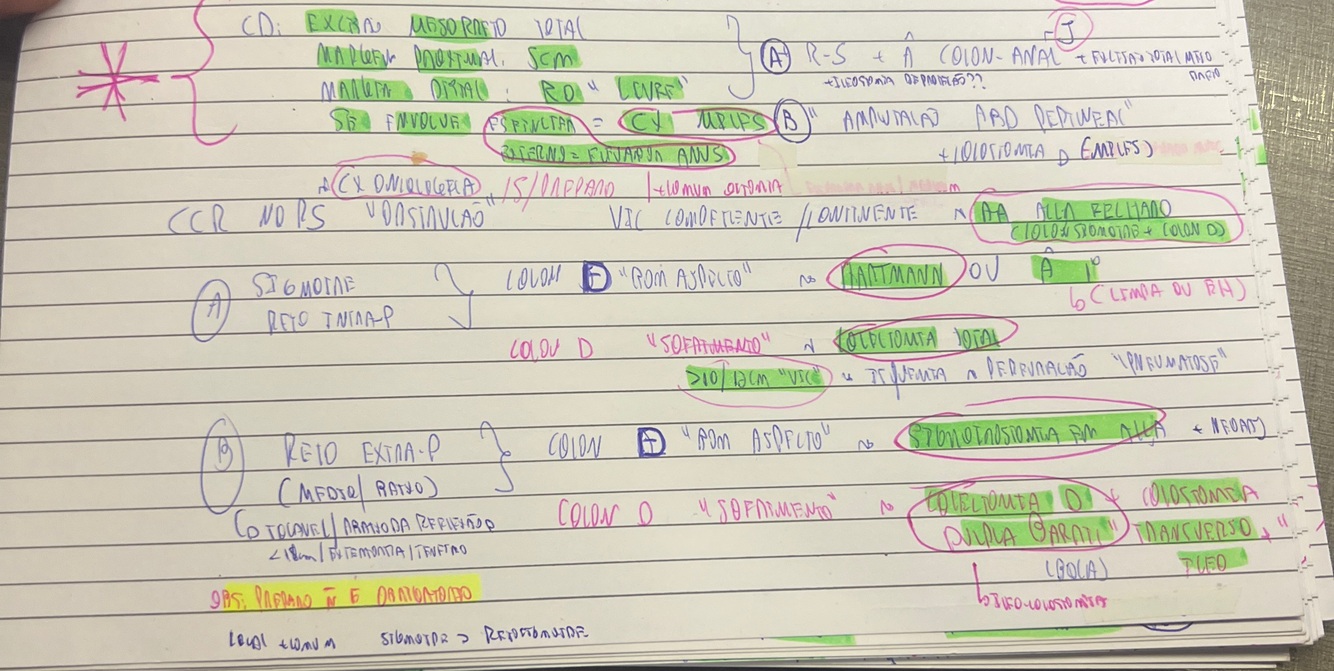 CD: EXCISÃO MESORRETO TOTAL
MARGEM PROXIMAL: 5CM
MARGEM DISTAL: RD "LIVRE"
SE ENVOLVE ESFINCTER = CX MILES
EXTERNO = ELEVADOR ANUS
(A) R-S + Â COLON-ANAL "J" + EXCISÃO TOTAL MESO RRETO
+ ILEOSTOMIA DE PROTEÇÃO??
(B) "AMPUTAÇÃO ABD PERINEAL"
+ COLOSTOMIA D (MILES)
CX ONCOLOGICA, S/ PREPARO | + COMUM
CCR NO PS "OBSTRUÇÃO" VIC COMPETENTE / CONTINENTE ~ AA ALÇA FECHADO
(COLON SIGMOIDE + COLON D)
(A) SIGMOIDE
RETO INTRA-P
COLON E "BOM ASPECTO" ~ HARTMANN OU Â 1º
↳ (LIMPA OU EH)
COLON D "SOFRIMENTO" ~ COLECTOMIA TOTAL
>10/12CM "VIC" ~ ISQUEMIA ~ PERFURAÇÃO "PNEUMATOSE"
(B) RETO EXTRA-P
(MEDIO/BAIXO)
↳ TOCAVEL/ABAIXO DA REFLEXÃO
COLON E "BOM ASPECTO" ~ SIGMOIDOSTOMIA EM ALÇA + NEOADJ
COLON D "SOFRIMENTO" ~ COLECTOMIA D + COLOSTOMIA
TRANSVERSO + "
(BOCA) ILEO
↳ ILEO-COLOSTOMIA
OBS: PREPARO Ñ É OBRIGATORIO
LOCAL + COMUM SIGMOIDE > RETOSIGMOIDE